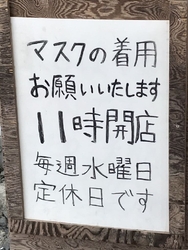 マスクの着用
お願いいたします
11時開店
毎週水曜日
定休日です